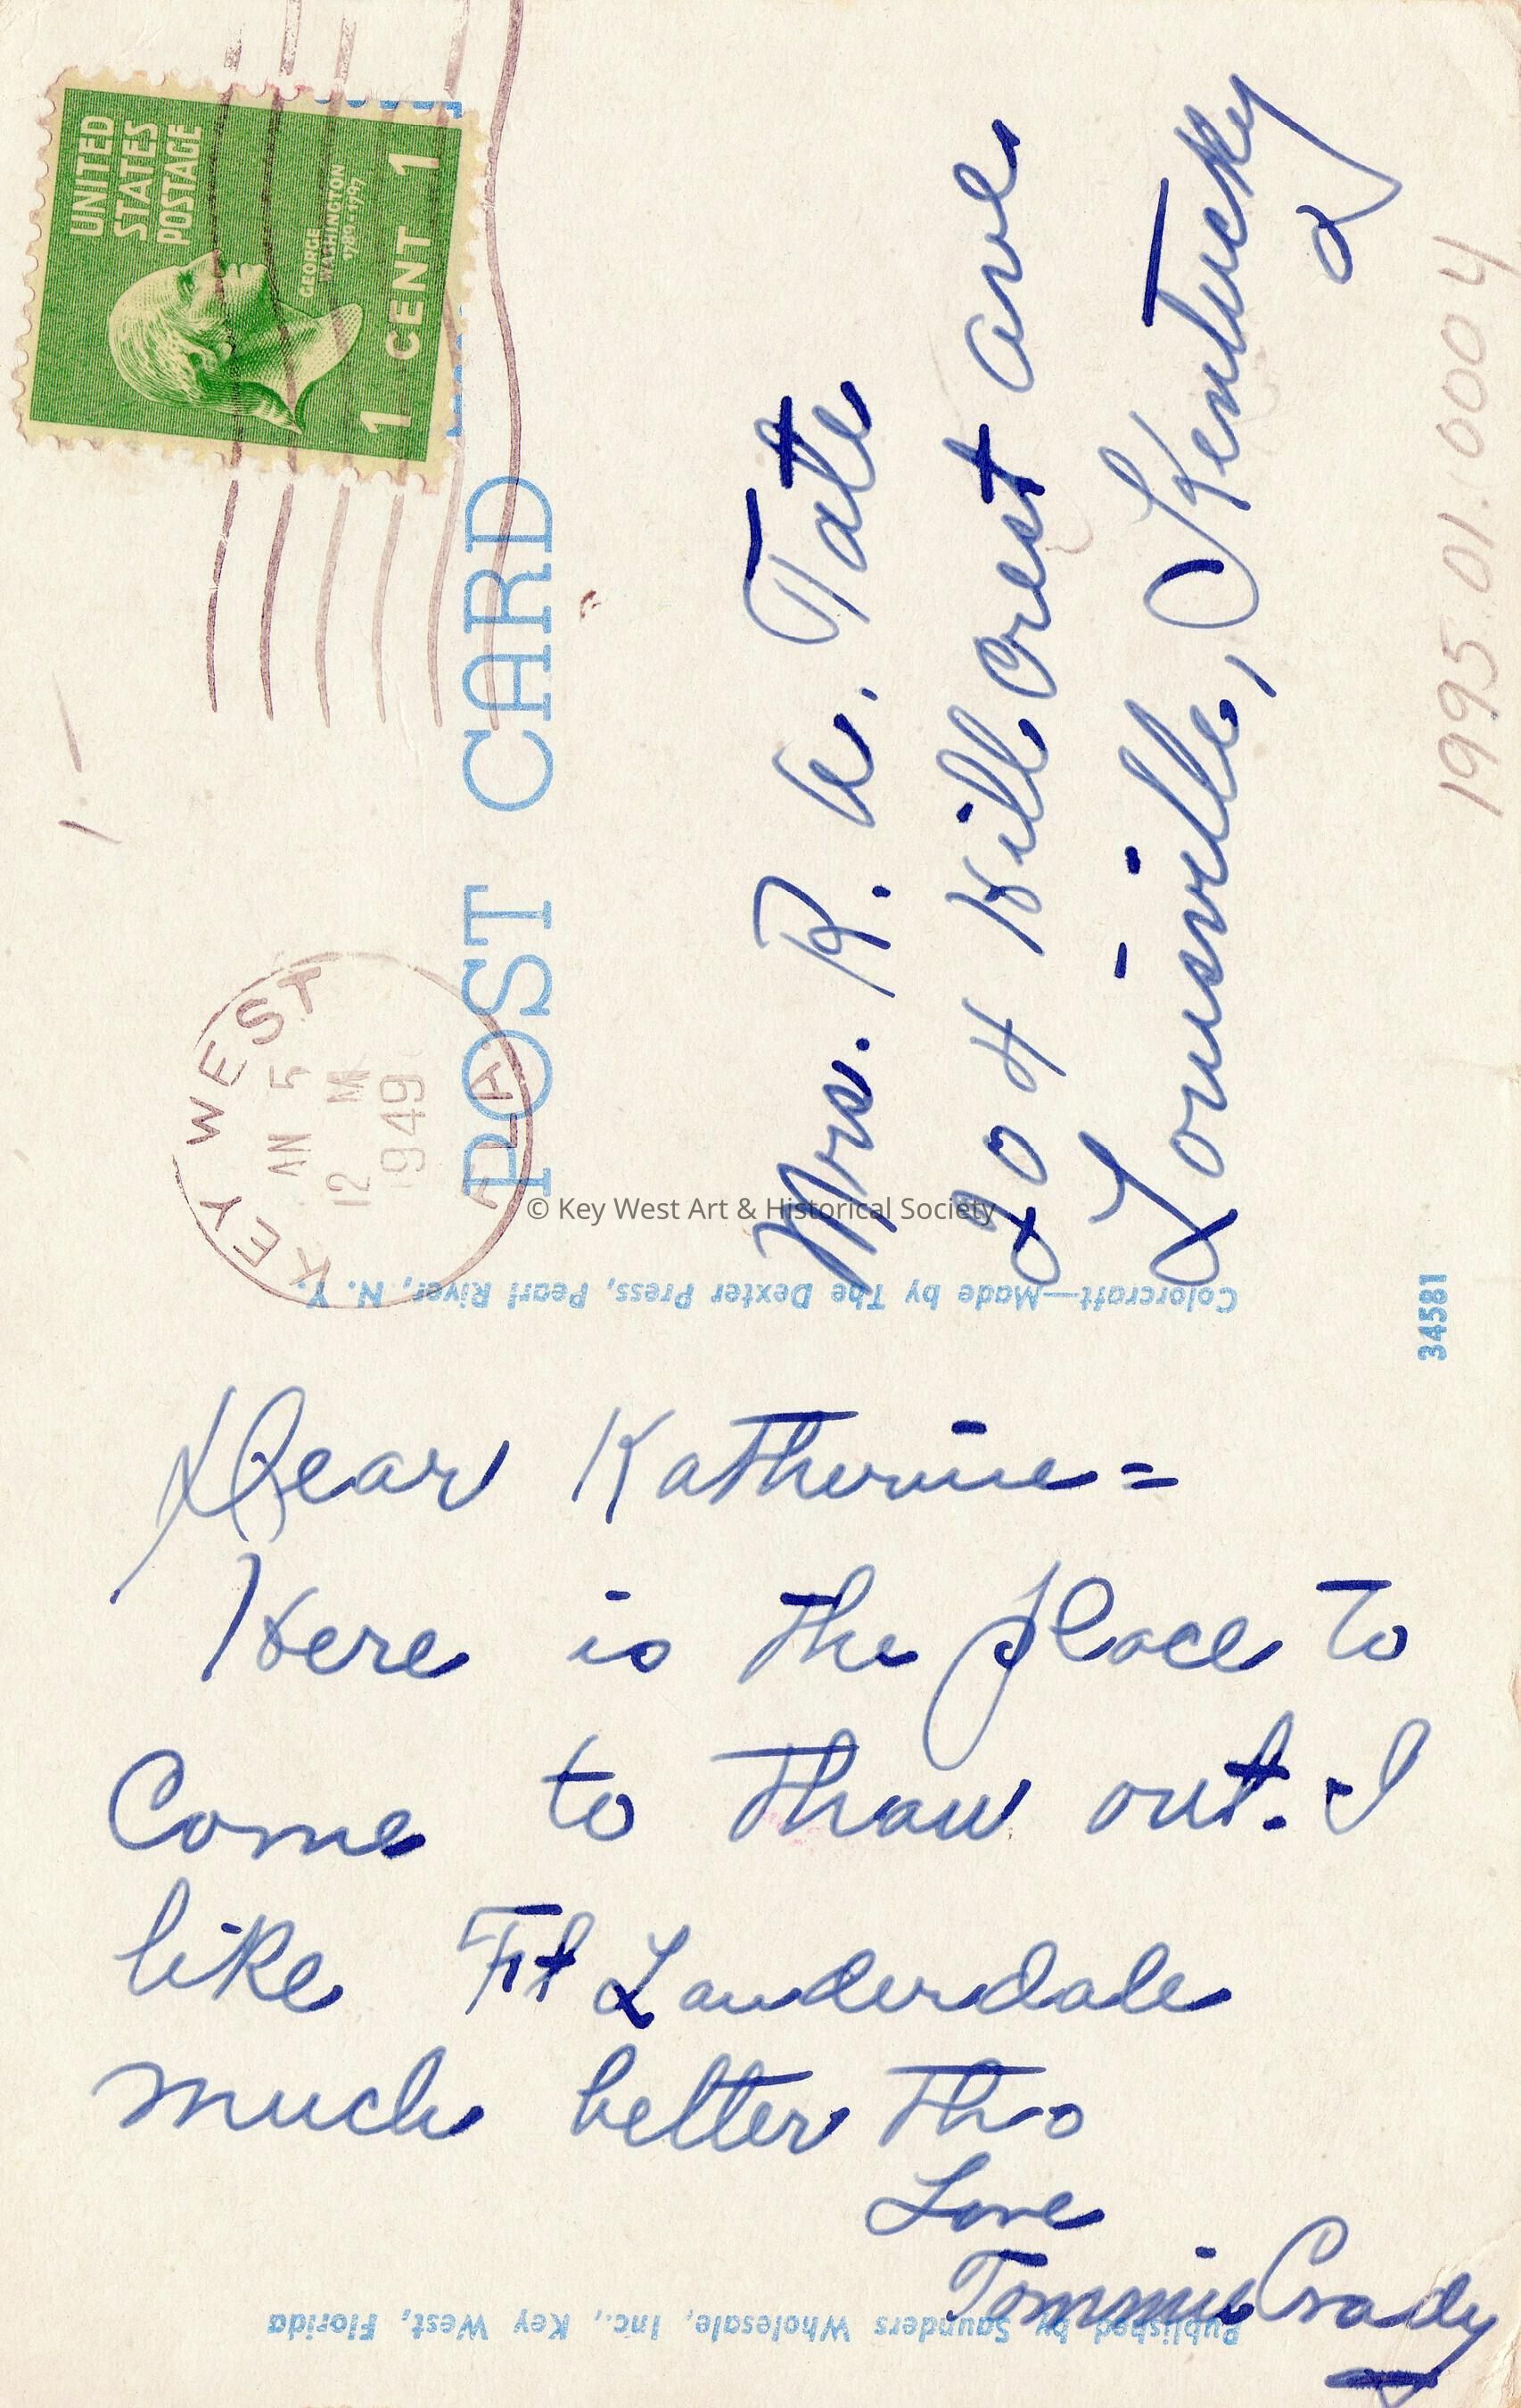 UNITED
STATES
POSTAGE
GEORGE
WASHINGTON
1789-1797
1 CENT 1
KEY WEST
AN 5
12 M
1949
LA.
POST CARD
Mrs. R. W. Tate
204 Hill Crest ave
Louisville, Kentucky
1995.01.0004
© Key West Art & Historical Society
Colorcraft—Made by The Dexter Press, Pearl River, N. Y.
34581
Dear Katherine =
Here is the place to
Come to thaw out. I
like Ft Lauderdale
much better tho
Love
Tommie Crady
Published by Saunders Wholesale, Inc., Key West, Florida